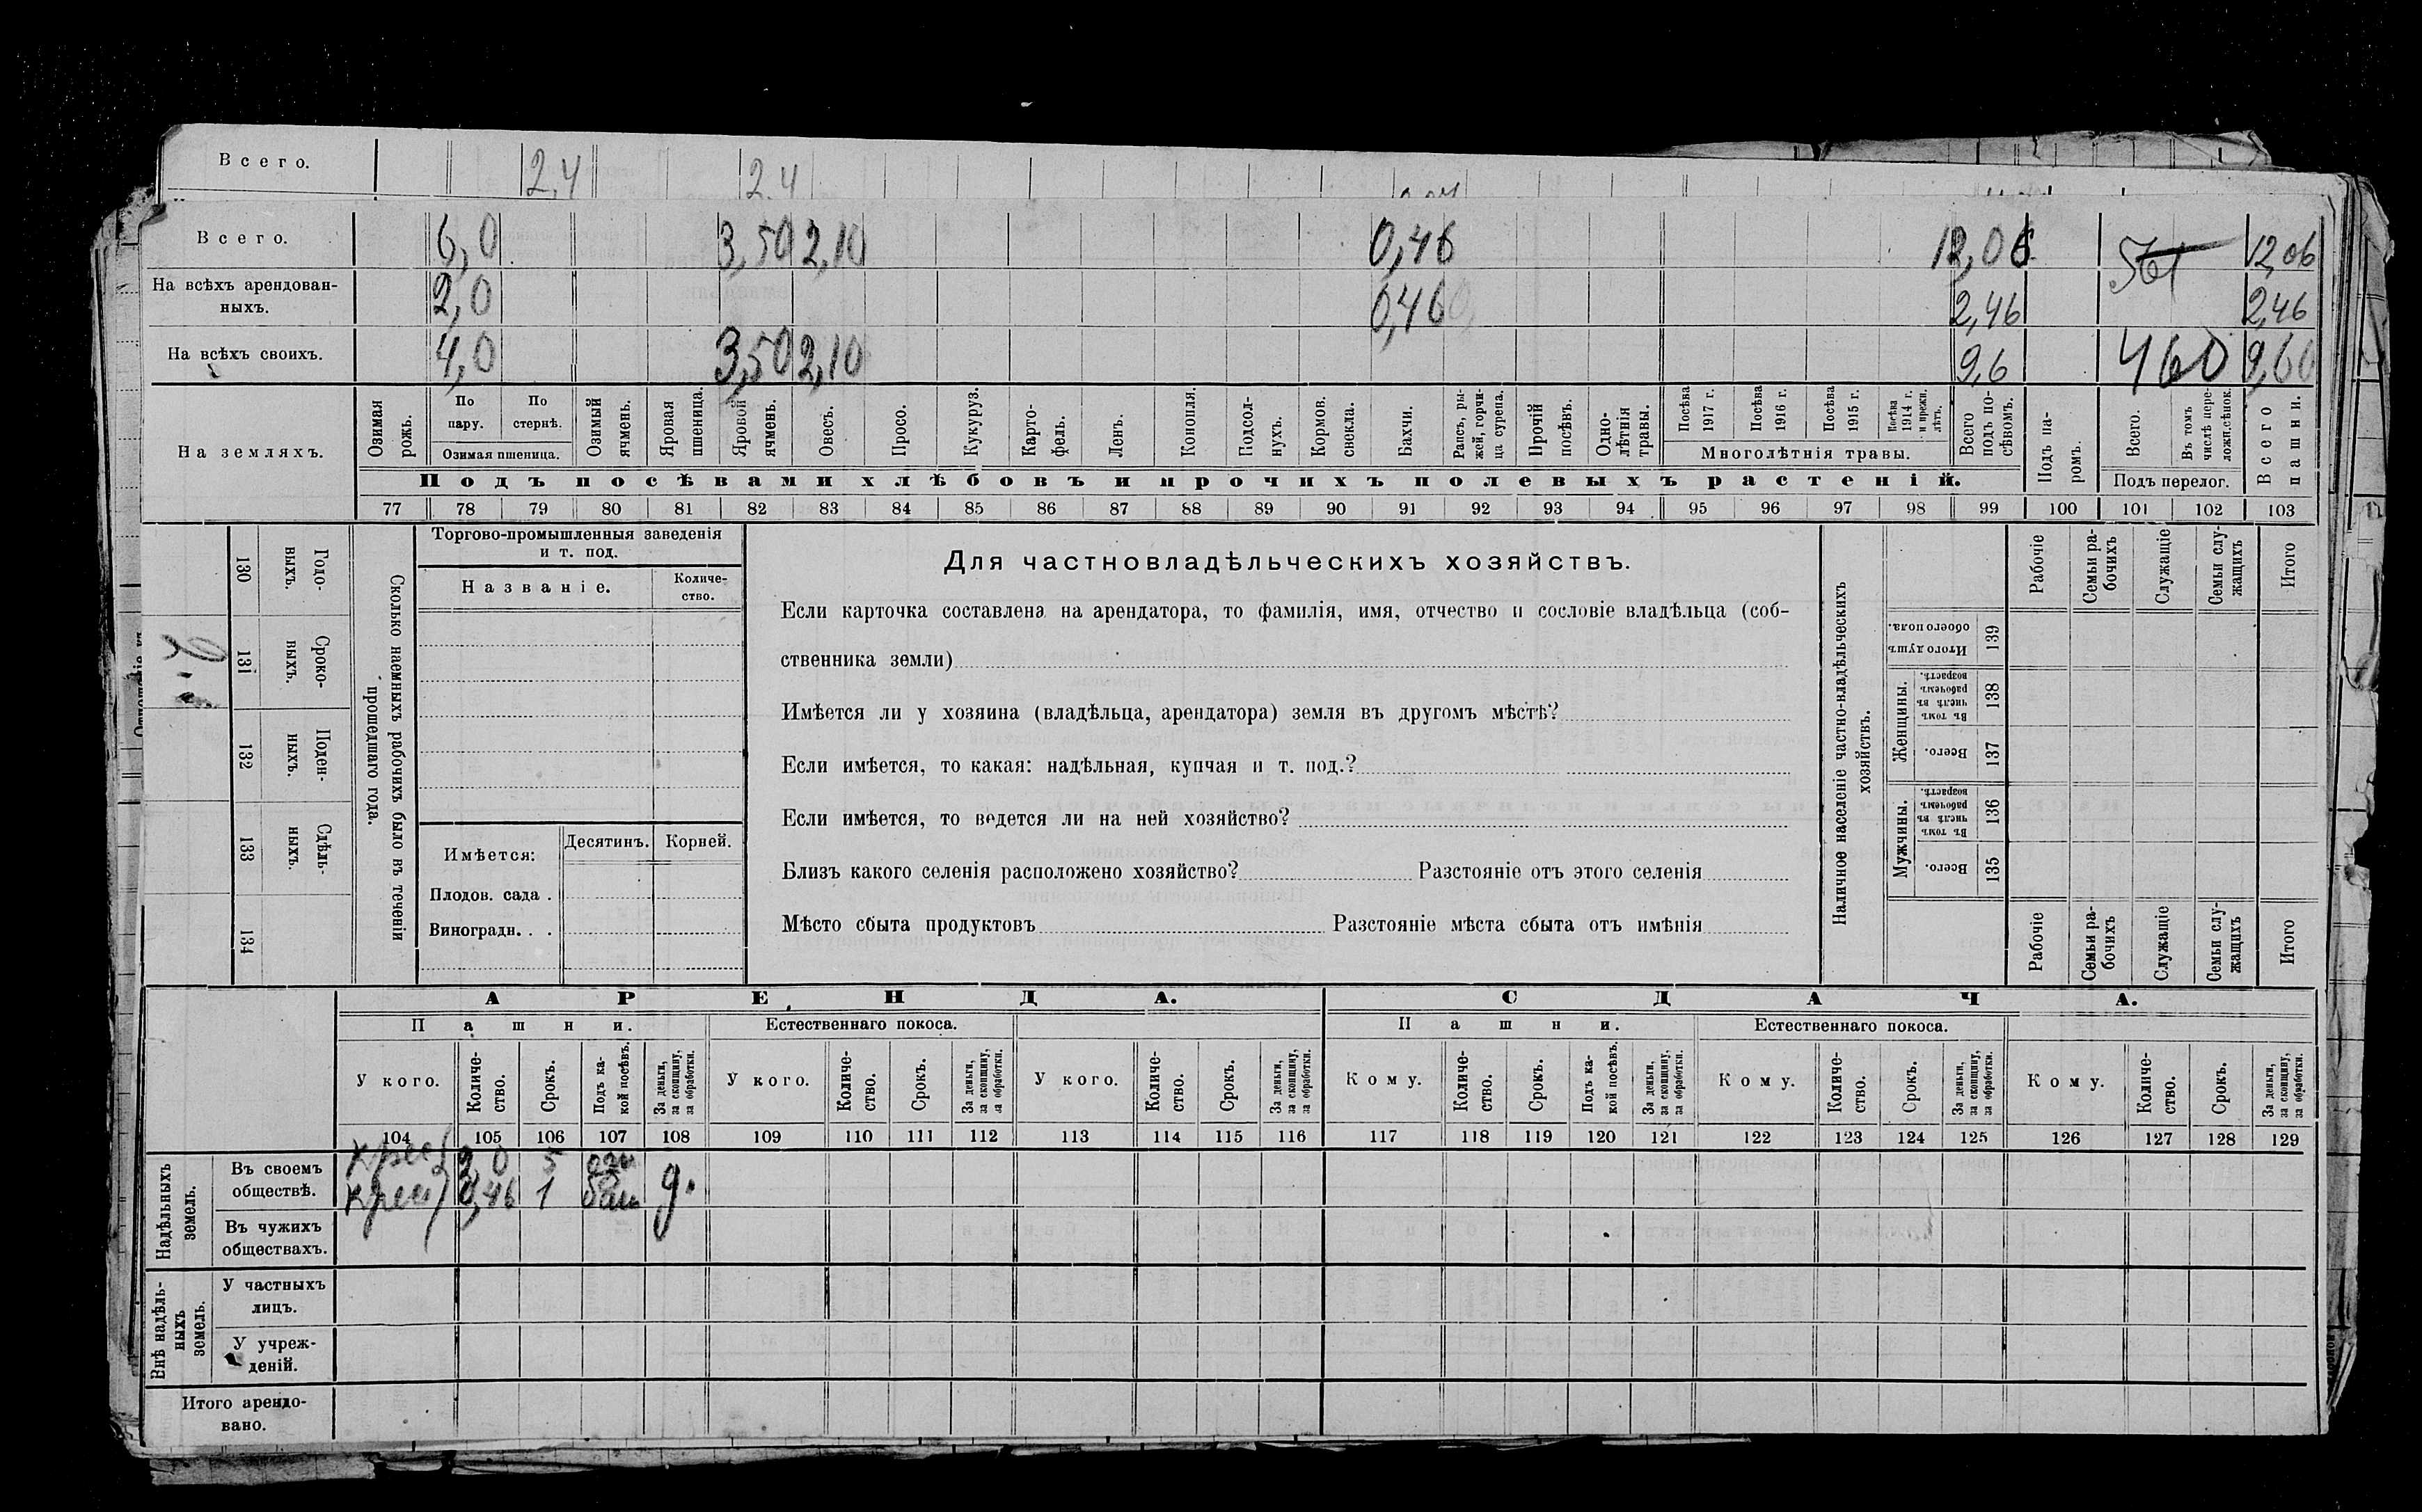 Всего. 2,4 2,4
Всего. 6,0 3,50 2,10 0,46 12,06 12,06
На всѣхъ арендован-
ныхъ. 2,0 0,46 2,46 2,46
На всѣхъ своихъ. 4,0 3,50 2,10 9,6 460 9,60
На земляхъ.
Озимая рожь.
По пару.
По стернѣ.
Озимая пшеница.
Озимый ячмень.
Яровая пшеница.
Яровой ячмень.
Овесъ.
Просо.
Кукуруз.
Карто-
фель.
Ленъ.
Конопля.
Подсол-
нухъ.
Кормов. свекла.
Бахчи.
Рапсъ, ры-
жей, горчи-
ца сурепа.
Прочій посѣвъ.
Одно-
лѣтнія травы.
Посѣва 1917 г.
Посѣва 1916 г.
Посѣва 1915 г.
Посѣва 1914 г. и прежн. лѣтъ.
Многолѣтнія травы.
Всего подъ по-
сѣвомъ.
Подъ па-
ромъ.
Всего.
Въ томъ числѣ пере-
ложн. сѣнок.
Подъ перелог.
Всего пашни.
Подъ посѣвами хлѣбовъ и прочихъ полевыхъ растеній.
77 78 79 80 81 82 83 84 85 86 87 88 89 90 91 92 93 94 95 96 97 98 99 100 101 102 103
130 Годо-
выхъ.
131 Сроко-
выхъ.
132 Поден-
ныхъ.
133 Сдѣль-
ныхъ.
134
Сколько наемныхъ рабочихъ было въ теченіи
прошедшаго года.
Торгово-промышленныя заведенія
и т. под.
Названіе.
Количе-
ство.
Имѣется:
Десятинъ.
Корней.
Плодов. сада .
Виноградн. . .
Для частновладѣльческихъ хозяйствъ.
Если карточка составлена на арендатора, то фамилія, имя, отчество и сословіе владѣльца (соб-
ственника земли)
Имѣется ли у хозяина (владѣльца, арендатора) земля въ другомъ мѣстѣ?
Если имѣется, то какая: надѣльная, купчая и т. под.?
Если имѣется, то ведется ли на ней хозяйство?
Близъ какого селенія расположено хозяйство? Разстояніе отъ этого селенія
Мѣсто сбыта продуктовъ Разстояніе мѣста сбыта отъ имѣнія
Наличное населеніе частно-владѣльческихъ
хозяйствъ.
Рабочіе
Семьи ра-
бочихъ
Служащіе
Семьи слу-
жащихъ
Итого
Итого душъ обоего пола. 139
Женщины.
Въ томъ числѣ въ рабочемъ возрастѣ. 138
Всего. 137
Мужчины.
Въ томъ числѣ въ рабочемъ возрастѣ. 136
Всего. 135
Рабочіе
Семьи ра-
бочихъ
Служащіе
Семьи слу-
жащихъ
Итого
АРЕНДА. СДАЧА.
Пашни. Естественнаго покоса. Пашни. Естественнаго покоса.
У кого.
Количе-
ство.
Срокъ.
Подъ ка-
кой посѣвъ.
За деньги,
за скопщину,
за обработки.
У кого.
Количе-
ство.
Срокъ.
За деньги,
за скопщину,
за обработки.
У кого.
Количе-
ство.
Срокъ.
За деньги,
за скопщину,
за обработки.
Кому.
Количе-
ство.
Срокъ.
Подъ ка-
кой посѣвъ.
За деньги,
за скопщину,
за обработки.
Кому.
Количе-
ство.
Срокъ.
За деньги,
за скопщину,
за обработки.
Кому.
Количе-
ство.
Срокъ.
За деньги,
за скопщину,
за обработки.
104 105 106 107 108 109 110 111 112 113 114 115 116 117 118 119 120 121 122 123 124 125 126 127 128 129
Надѣльныхъ земель.
Въ своемъ
обществѣ.
крес 2,0 5 ози
крес 0,46 1 бах д.
Въ чужихъ
обществахъ.
Внѣ надѣль-
ныхъ земель.
У частныхъ
лицъ.
У учреж-
деній.
Итого арендо-
вано.